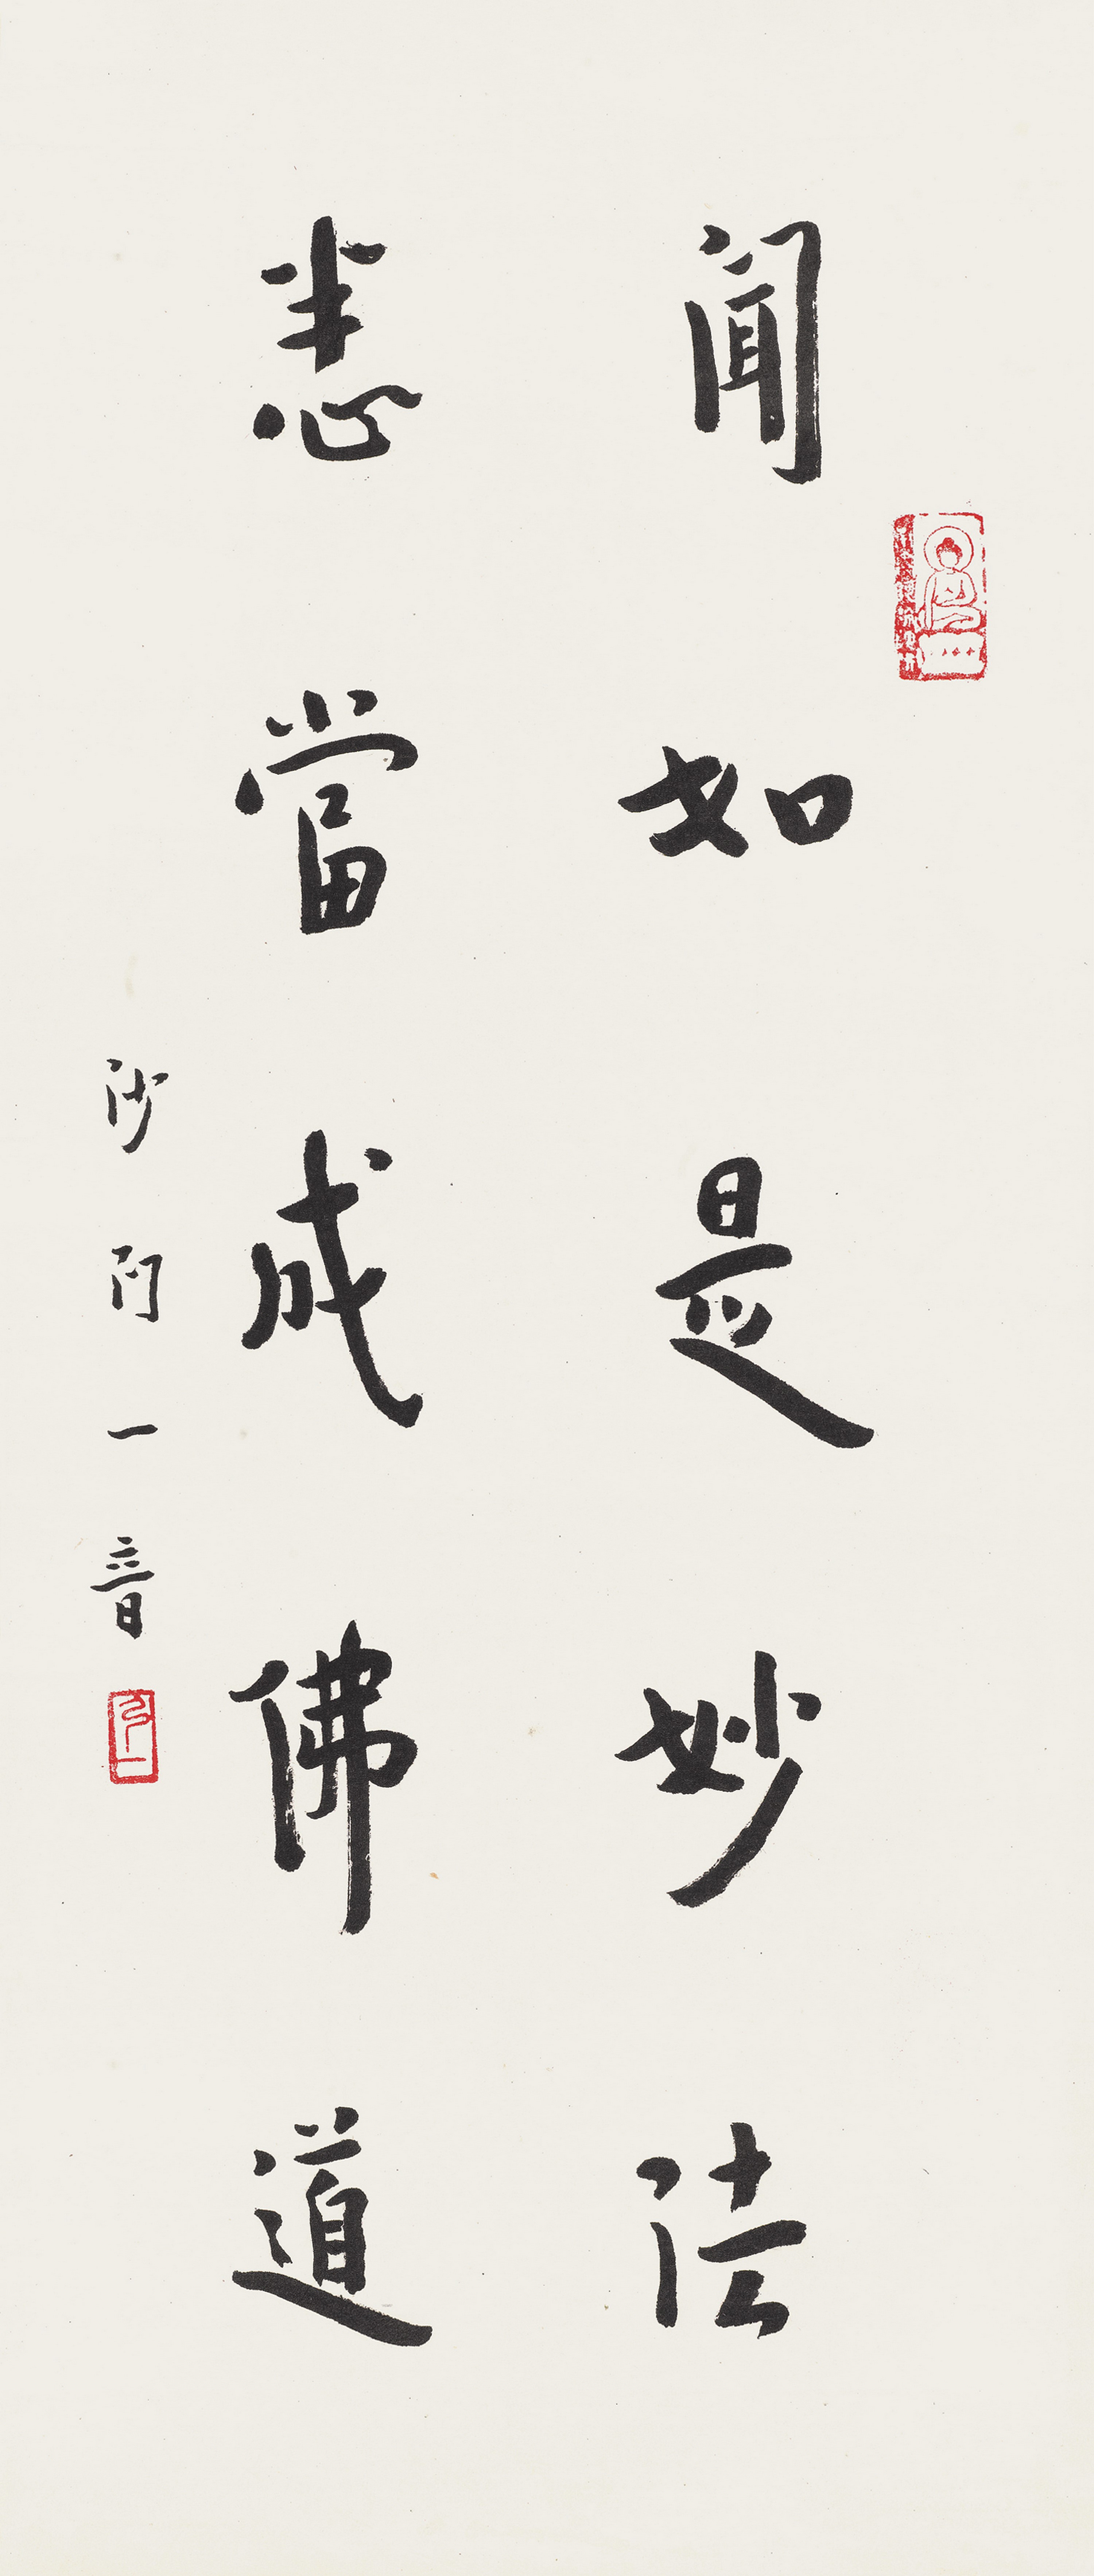 聞如是妙法
悉當成佛道
沙門一音